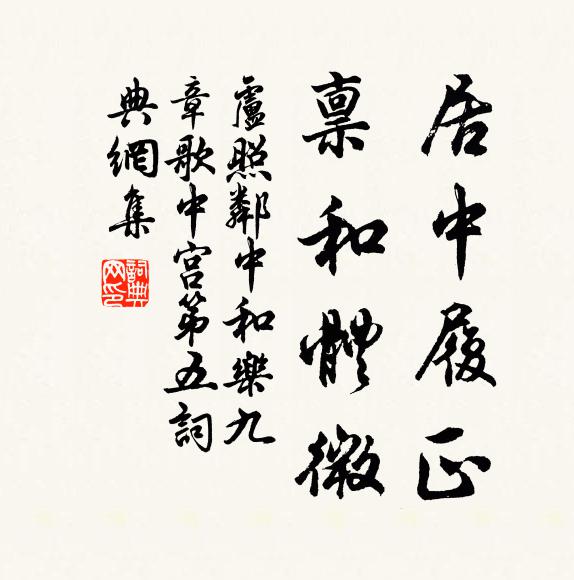 居中履正
稟和體微
盧照鄰中和樂九
章歌中宮第五詞
典網集
詞典網印